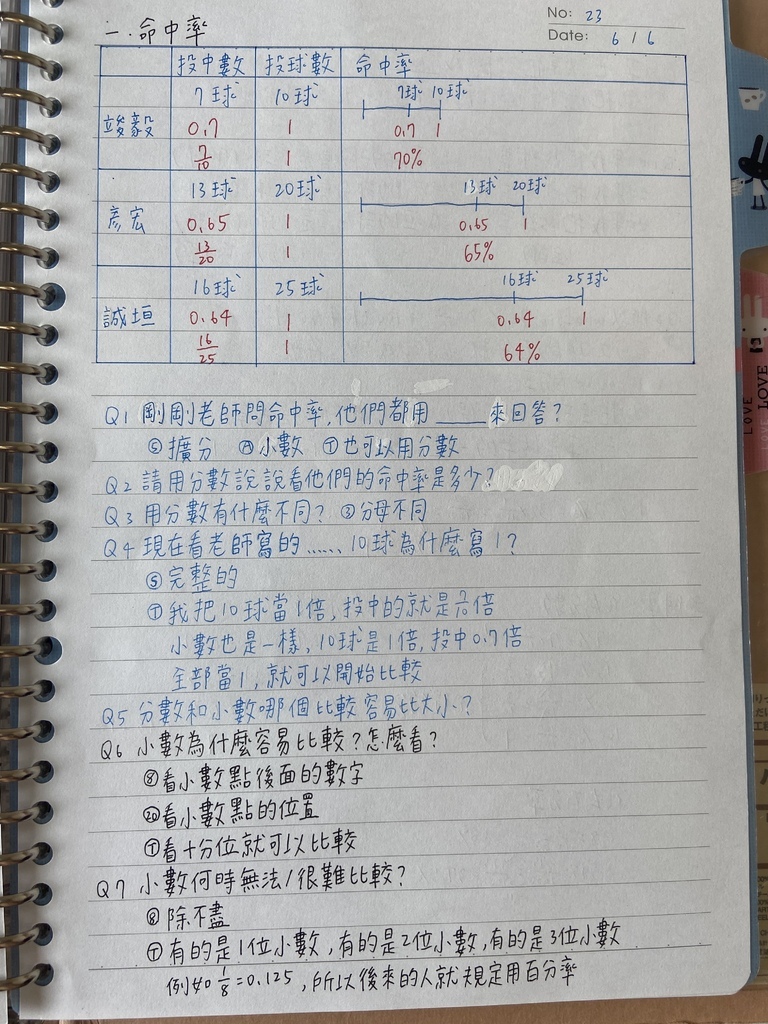 No: 23
Date: 6 / 6
一. 命中率
投中數 投球數 命中率
竣毅
7球 10球 7球 10球
0.7 1 0.7 1
7/10 1 70%
彥宏
13球 20球 13球 20球
0.65 1 0.65 1
13/20 1 65%
誠垣
16球 25球 16球 25球
0.64 1 0.64 1
16/25 1 64%
Q1 剛剛老師問命中率,他們都用____來回答?
Ⓢ擴分 小數 Ⓣ也可以用分數
Q2 請用分數說說看他們的命中率是多少?
Q3 用分數有什麼不同? 分母不同
Q4 現在看老師寫的……10球為什麼寫1?
Ⓢ完整的
Ⓣ我把10球當1倍,投中的就是7/10倍
小數也是一樣,10球是1倍,投中0.7倍
全部當1,就可以開始比較
Q5 分數和小數哪個比較容易比大小?
Q6 小數為什麼容易比較?怎麼看?
⑧看小數點後面的數字
⑳看小數點的位置
Ⓣ看十分位就可以比較
Q7 小數何時無法/很難比較?
⑧除不盡
Ⓣ有的是1位小數,有的是2位小數,有的是3位小數
例如1/8=0.125,所以後來的人就規定用百分率
LOVE
LOVE